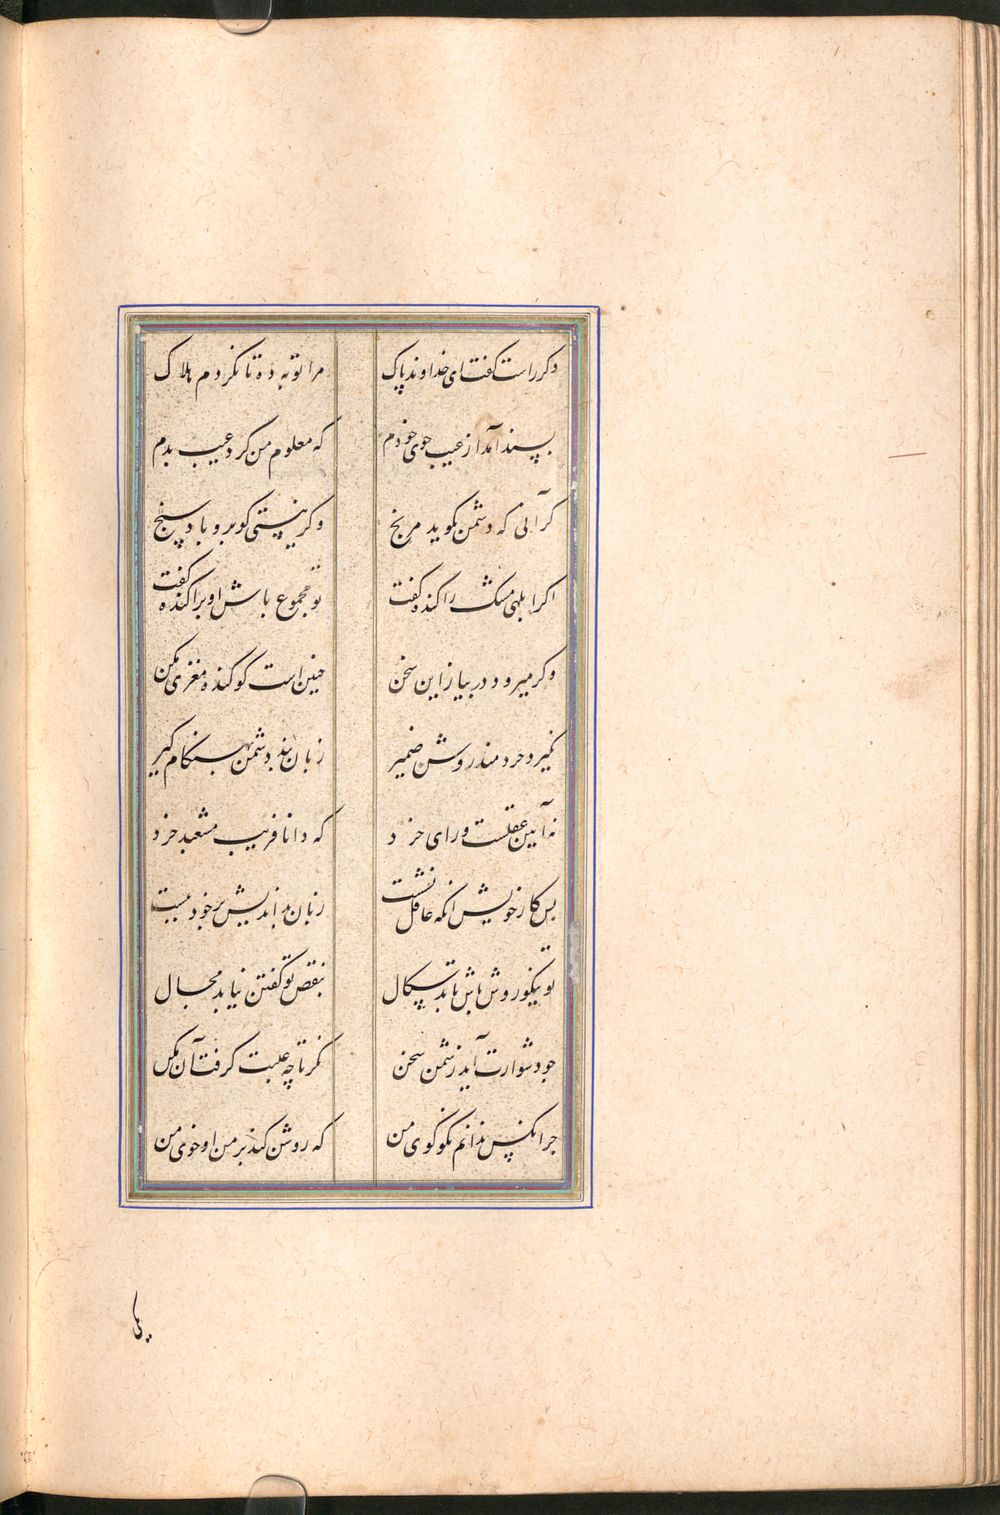 وکر راست کفت ای خداوند پاک مرا توبه ده تا نکردم هلاک
پسند آمد از عیب جوی خودم که معلوم من کرد عیب بدم
کر آنی که دشمنت کوید مرنج وکر نیستی کو برو باد سنج
اکر ابلهی مشک را کنده کفت تو مجموع باش او پراکنده کفت
وکر میرود در پیاز این سخن چنین است کو کنده مغزی مکن
نکیرد خردمند روشن ضمیر زبان بند دشمن بهنکام کیر
نه آیین عقلست و رای خرد که دانا فریب مشعبد خرد
پس کار خویش انکه عاقل نشست زبان بداندیش بر خود ببست
تو نیکو روش باش تا بد سکال بنقص تو کفتن نیابد مجال
چو دشوارت آید ز دشمن سخن نکر تا چه عیبت کرفت آن مکن
جز انکس ندانم نکو کوی من که روشن کند بر من اوخوی من
یکی